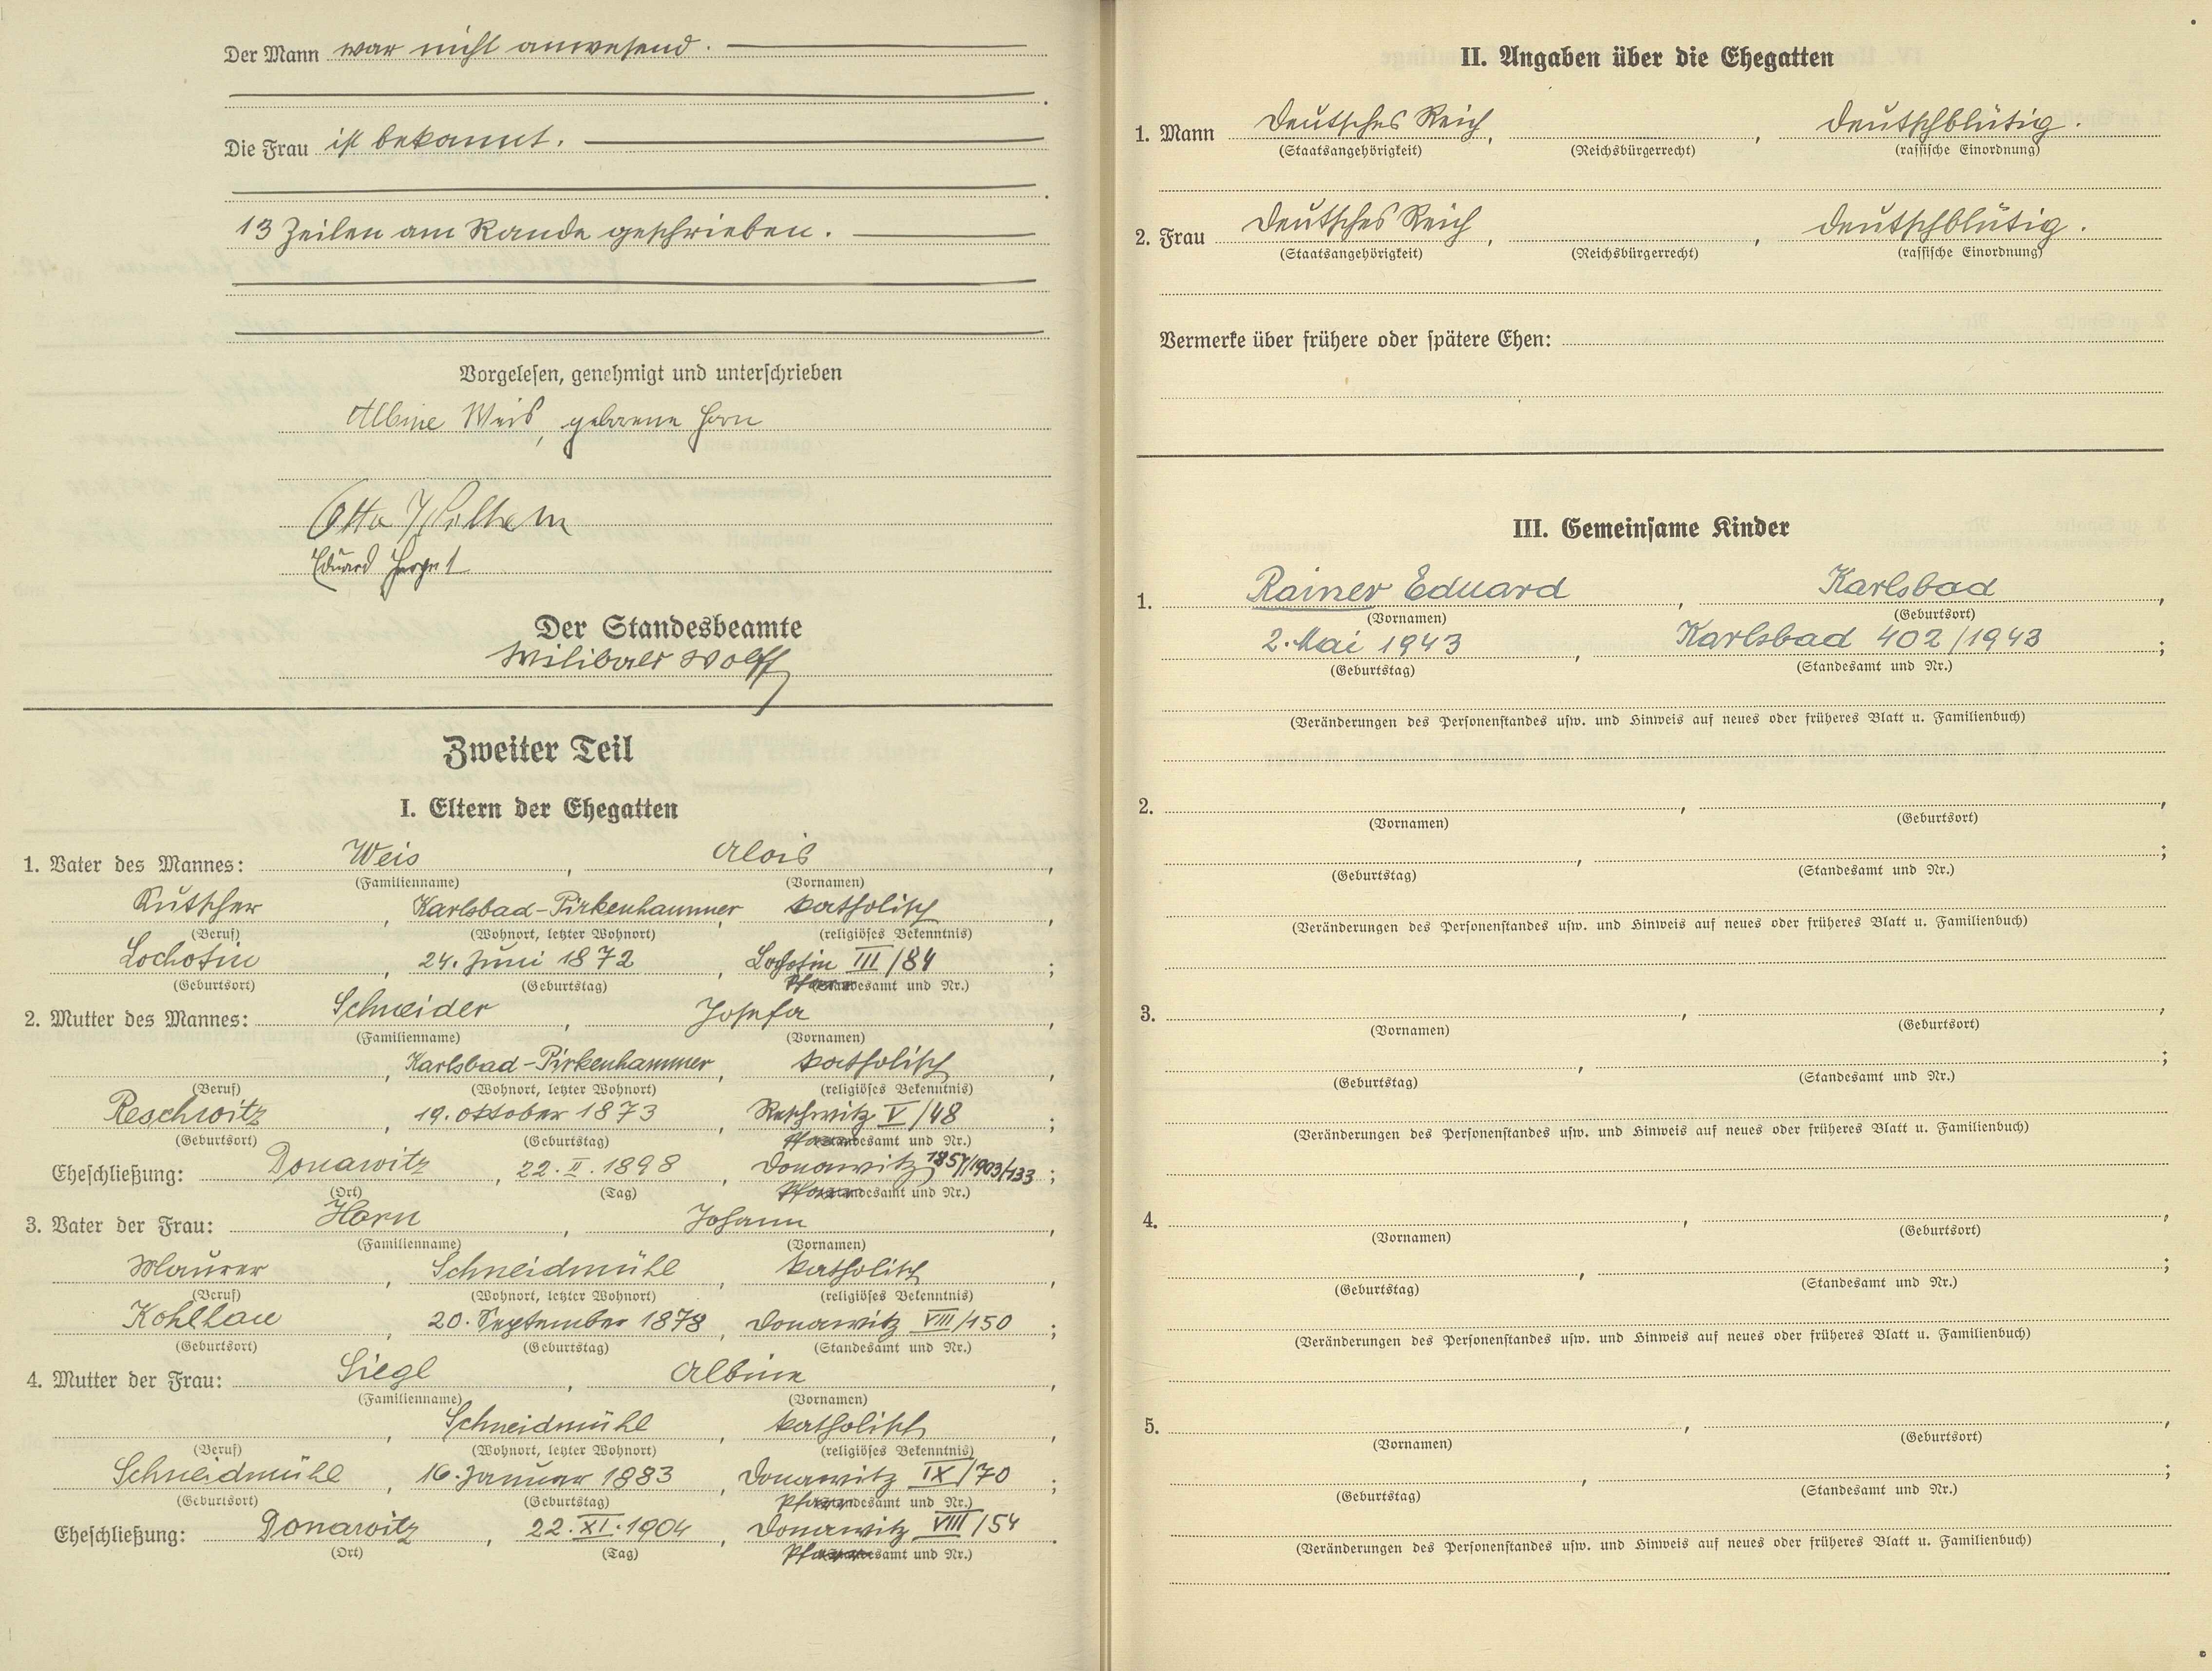 Der Mann war nicht anwesend.
Die Frau ist bekannt.
13 Zeilen am Rande geschrieben.
Vorgelesen, genehmigt und unterschrieben
Albine Weis, geborene Horn
Otto Wilhelm
Eduard
Der Standesbeamte
Wilibald Wolff
Zweiter Teil
I. Eltern der Ehegatten
1. Vater des Mannes: Weis, Alois,
(Familienname) (Vornamen)
Kutscher, Karlsbad-Pirkenhammer, katholisch,
(Beruf) (Wohnort, letzter Wohnort) (religiöses Bekenntnis)
Lochotin, 24. Juni 1872, Lochotin III/84;
(Geburtsort) (Geburtstag) Pfarramt und Nr.)
2. Mutter des Mannes: Schneider, Josefa,
(Familienname) (Vornamen)
, Karlsbad-Pirkenhammer, katholisch,
(Beruf) (Wohnort, letzter Wohnort) (religiöses Bekenntnis)
Reschwitz, 19. Oktober 1873, Reschwitz V/48;
(Geburtsort) (Geburtstag) Pfarramt und Nr.)
Eheschließung: Donawitz, 22. II. 1898, Donawitz, 1857/1903/133;
(Ort) (Tag) Pfarramt und Nr.)
3. Vater der Frau: Horn, Johann,
(Familienname) (Vornamen)
Maurer, Schneidmühl, katholisch,
(Beruf) (Wohnort, letzter Wohnort) (religiöses Bekenntnis)
Kohlhau, 20. September 1878, Donawitz VIII/150;
(Geburtsort) (Geburtstag) (Standesamt und Nr.)
4. Mutter der Frau: Siegl, Albine,
(Familienname) (Vornamen)
, Schneidmühl, katholisch,
(Beruf) (Wohnort, letzter Wohnort) (religiöses Bekenntnis)
Schneidmühl, 16. Januar 1883, Donawitz IX/70;
(Geburtsort) (Geburtstag) Pfarramt und Nr.)
Eheschließung: Donawitz, 22. XI. 1904, Donawitz VIII/54.
(Ort) (Tag) Pfarramt und Nr.)
II. Angaben über die Ehegatten
1. Mann Deutsches Reich, , deutschblütig.
(Staatsangehörigkeit) (Reichsbürgerrecht) (rassische Einordnung)
2. Frau Deutsches Reich, , deutschblütig.
(Staatsangehörigkeit) (Reichsbürgerrecht) (rassische Einordnung)
Vermerke über frühere oder spätere Ehen:
III. Gemeinsame Kinder
1. Rainer Eduard, Karlsbad,
(Vornamen) (Geburtsort)
2. Mai 1943, Karlsbad 402/1943;
(Geburtstag) (Standesamt und Nr.)
(Veränderungen des Personenstandes usw. und Hinweis auf neues oder früheres Blatt u. Familienbuch)
2. , ,
(Vornamen) (Geburtsort)
, ;
(Geburtstag) (Standesamt und Nr.)
(Veränderungen des Personenstandes usw. und Hinweis auf neues oder früheres Blatt u. Familienbuch)
3. , ,
(Vornamen) (Geburtsort)
, ;
(Geburtstag) (Standesamt und Nr.)
(Veränderungen des Personenstandes usw. und Hinweis auf neues oder früheres Blatt u. Familienbuch)
4. , ,
(Vornamen) (Geburtsort)
, ;
(Geburtstag) (Standesamt und Nr.)
(Veränderungen des Personenstandes usw. und Hinweis auf neues oder früheres Blatt u. Familienbuch)
5. , ,
(Vornamen) (Geburtsort)
, ;
(Geburtstag) (Standesamt und Nr.)
(Veränderungen des Personenstandes usw. und Hinweis auf neues oder früheres Blatt u. Familienbuch)